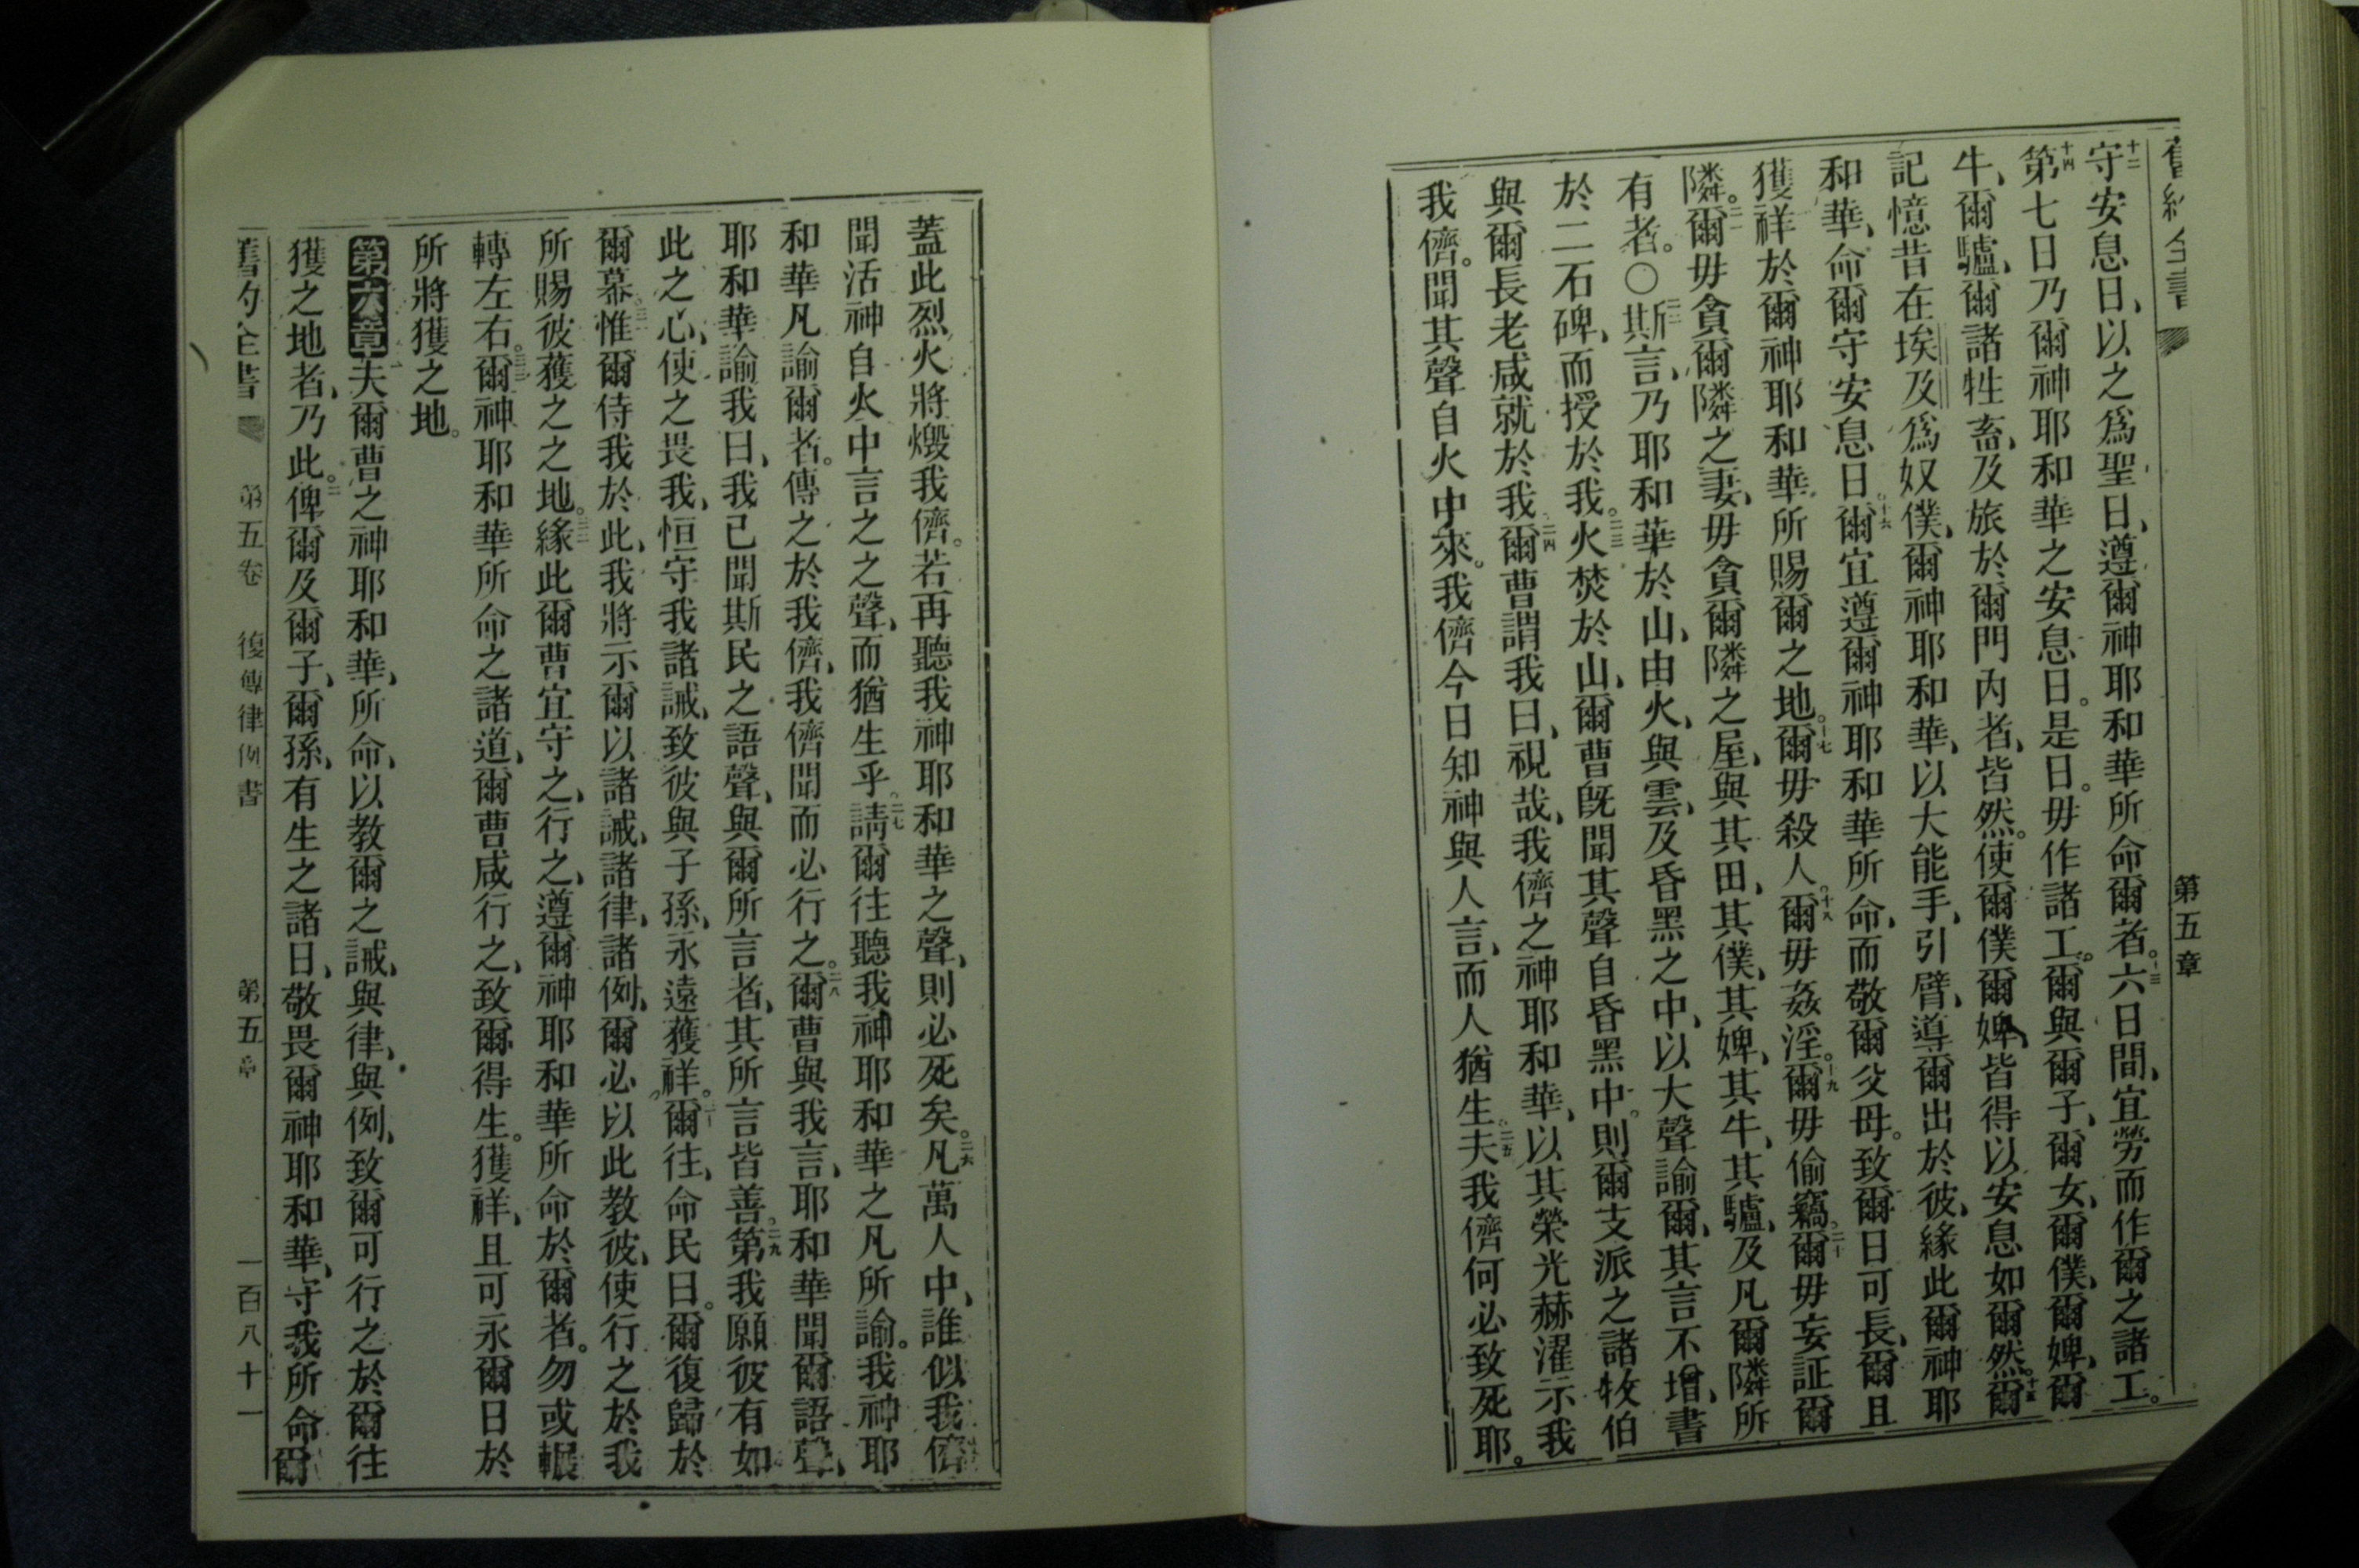 舊約全書
第五章
十二守安息日、以之爲聖日、遵爾神耶和華所命爾者。十三六日間、宜勞而作爾之諸工。
十四第七日乃爾神耶和華之安息日。是日。毋作諸工。爾與爾子、爾女、爾僕、爾婢、爾
牛、爾驢、爾諸牲畜、及旅於爾門內者、皆然。使爾僕爾婢、皆得以安息如爾然。十五爾
記憶昔在埃及爲奴僕、爾神耶和華、以大能手、引臂、導爾出於彼、緣此爾神耶
和華、命爾守安息日。十六爾宜遵爾神耶和華所命、而敬爾父母。致爾日可長、爾且
獲祥於爾神耶和華所賜爾之地。十七爾毋殺人。十八爾毋姦淫。十九爾毋偷竊。二十爾毋妄証爾
隣。二一爾毋貪爾隣之妻、毋貪爾隣之屋、與其田、其僕、其婢、其牛、其驢、及凡爾隣所
有者。〇二二斯言、乃耶和華於山、由火、與雲、及昏黑之中、以大聲諭爾、其言不增、書
於二石碑、而授於我。二三火焚於山、爾曹旣聞其聲自昏黑中。則爾支派之諸牧伯
與爾長老咸就於我。二四爾曹謂我曰、視哉、我儕之神耶和華、以其榮光赫濯示我
我儕。聞其聲自火中來。我儕今日知神與人言、而人猶生。二五夫我儕何必致死耶。
蓋此烈火將燬我儕。若再聽我神耶和華之聲、則必死矣。二六凡萬人中、誰似我儕
聞活神自火中言之之聲、而猶生乎。二七請爾往聽我神耶和華之凡所諭。我神耶
和華凡諭爾者。傳之於我儕、我儕聞而必行之。二八爾曹與我言、耶和華聞爾語聲、
耶和華諭我曰、我已聞斯民之語聲、與爾所言者、其所言皆善。二九第我願彼有如
此之心、使之畏我、恒守我諸誡、致彼與子孫、永遠獲祥。三十爾往、命民曰。爾復歸於
爾幕。三一惟爾侍我於此、我將示爾以諸誡、諸律、諸例、爾必以此教彼、使行之於我
所賜彼獲之之地。三二緣此爾曹宜守之、行之、遵爾神耶和華所命於爾者。勿或輾
轉左右。三三爾神耶和華所命之諸道、爾曹咸行之、致爾得生。獲祥、且可永爾日於
所將獲之地。
第六章一夫爾曹之神耶和華、所命、以教爾之誡、與律、與例、致爾可行之於爾往
獲之地者、乃此。二俾爾及爾子、爾孫、有生之諸日、敬畏爾神耶和華、守我所命爾
舊約全書 第五卷 復傳律例書 第五章 一百八十一